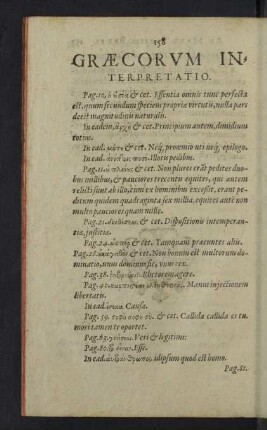 158
GRÆCORVM IN-
TERPRETATIO.
Pag.10. & cet. Essentia omnis tunc perfecta
est, quum secundum speciem propriæ virtutis, nulla pars
deest magnitudinis naturalis.
In eadem, ἀρχὴ & cet. Principium autem, dimidium
totius.
In ead. μήτε & cet. Neq; proœmio uti neq; epilogo.
In ead. Illotis pedibus.
Pag.11. & cet. Non plures erāt pedites duo-
bus millibus, & paucores trecenti equites, qui autem
relicti sunt ab illo, cum ex hominibus excessit, erant pe-
ditum quidem quadraginta sex millia, equites autē non
multo pauciores quam mille.
Pag.21. & cet. Dispositionis intemperan-
tia, iustitia.
Pag.24. & cet. Tanquam præeuntes alii.
Pag.28. & cet. Non bonum est multorum do-
minatio, unus dominus sit, unus rex.
Pag.38. Libertatem agere.
Pag.40. Manus iniectionem
libertatis.
In ead. Causa.
Pag.59. & cet. Callida callida es tu-
mori tamen te oportet.
Pag.63. γνήσιοι. Veri & legitimi:
Pag.80. Esse.
In ead. idipsum quod est homo.
Pag.81.